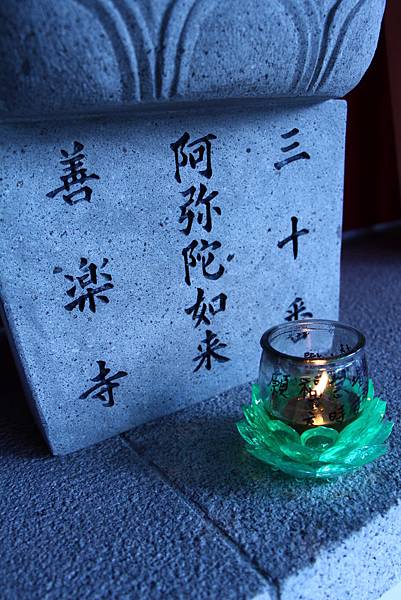 三十番
阿弥陀如来
善楽寺